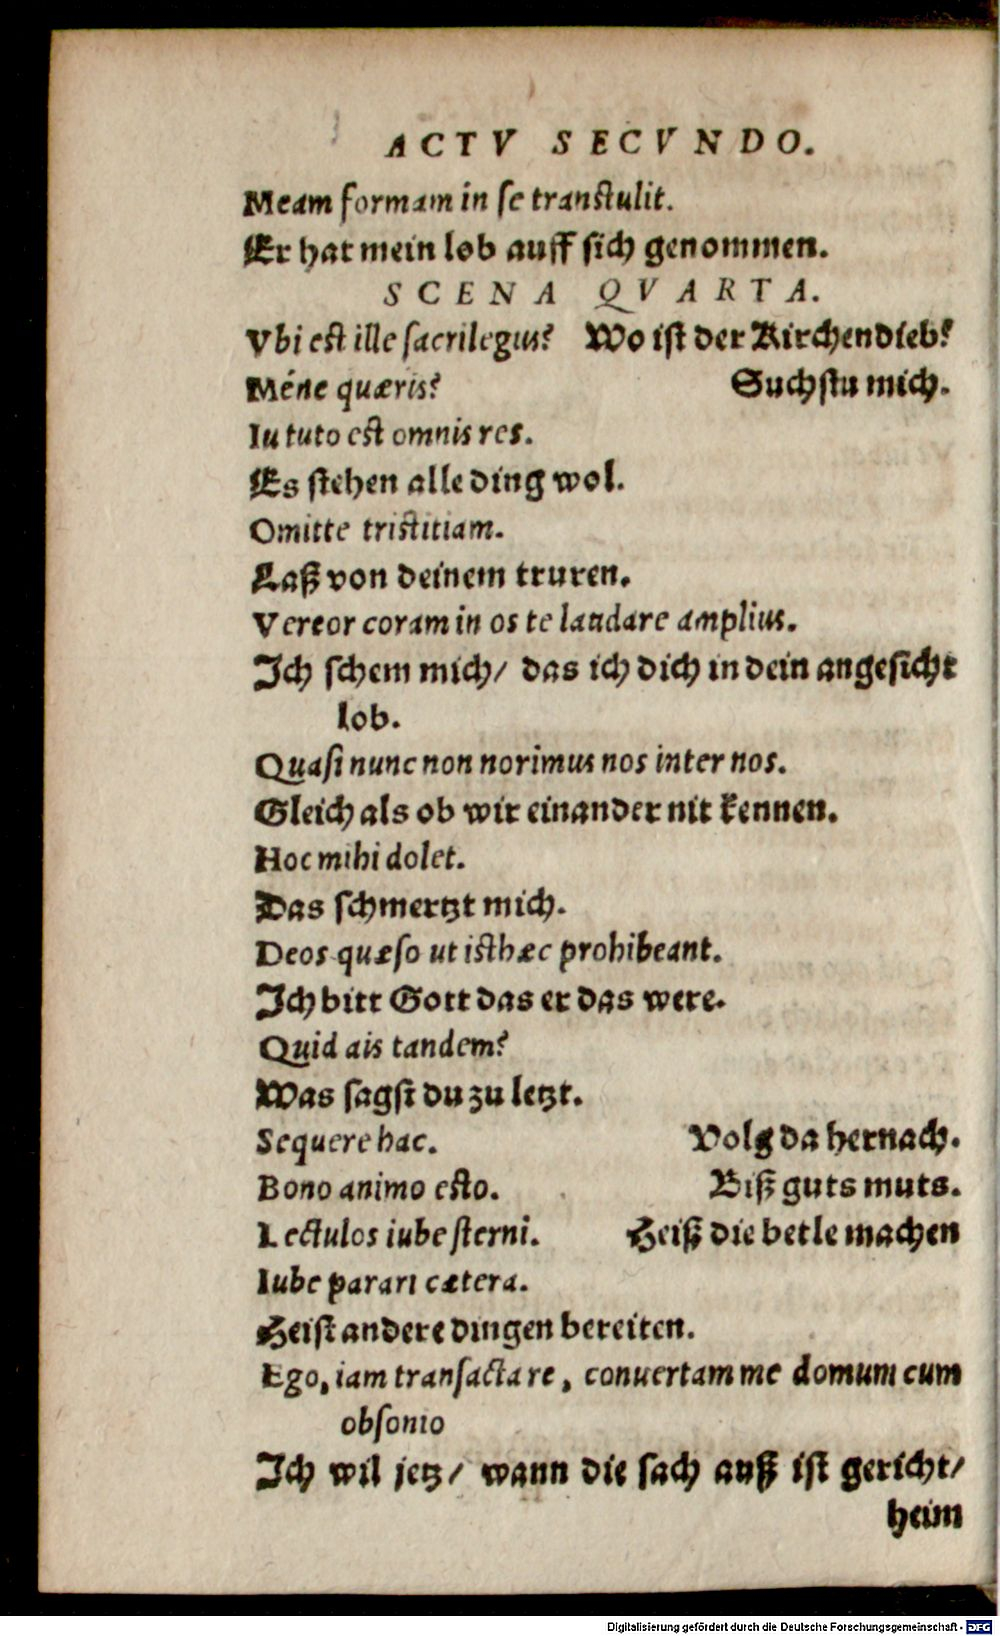 ACTV SECVNDO.
Meam formam in se transtulit.
Er hat mein lob auff sich genommen.
SCENA QVARTA.
Vbi est ille sacrilegus? Wo ist der Kirchendieb?
Méne quæris? Suchstu mich.
Iu tuto est omnis res.
Es stehen alle ding wol.
Omitte tristitiam.
Laß von deinem truren.
Vereor coram in os te laudare amplius.
Ich schem mich/ das ich dich in dein angesicht
lob.
Quasi nunc non norimus nos inter nos.
Gleich als ob wir einander nit kennen.
Hoc mihi dolet.
Das schmertzt mich.
Deos quæso ut isthæc prohibeant.
Ich bitt Gott das er das were.
Quid ais tandem?
Was sagst du zu letzt.
Sequere hac. Volg da hernach.
Bono animo esto. Biß guts muts.
Lectulos iube sterni. Heiß die betle machen
Iube parari cætera.
Heist andere dingen bereiten.
Ego, iam transacta re, conuertam me domum cum
obsonio
Ich wil jetz/ wann die sach auß ist gericht/
heim
Digitalisierung gefördert durch die Deutsche Forschungsgemeinschaft - DFG